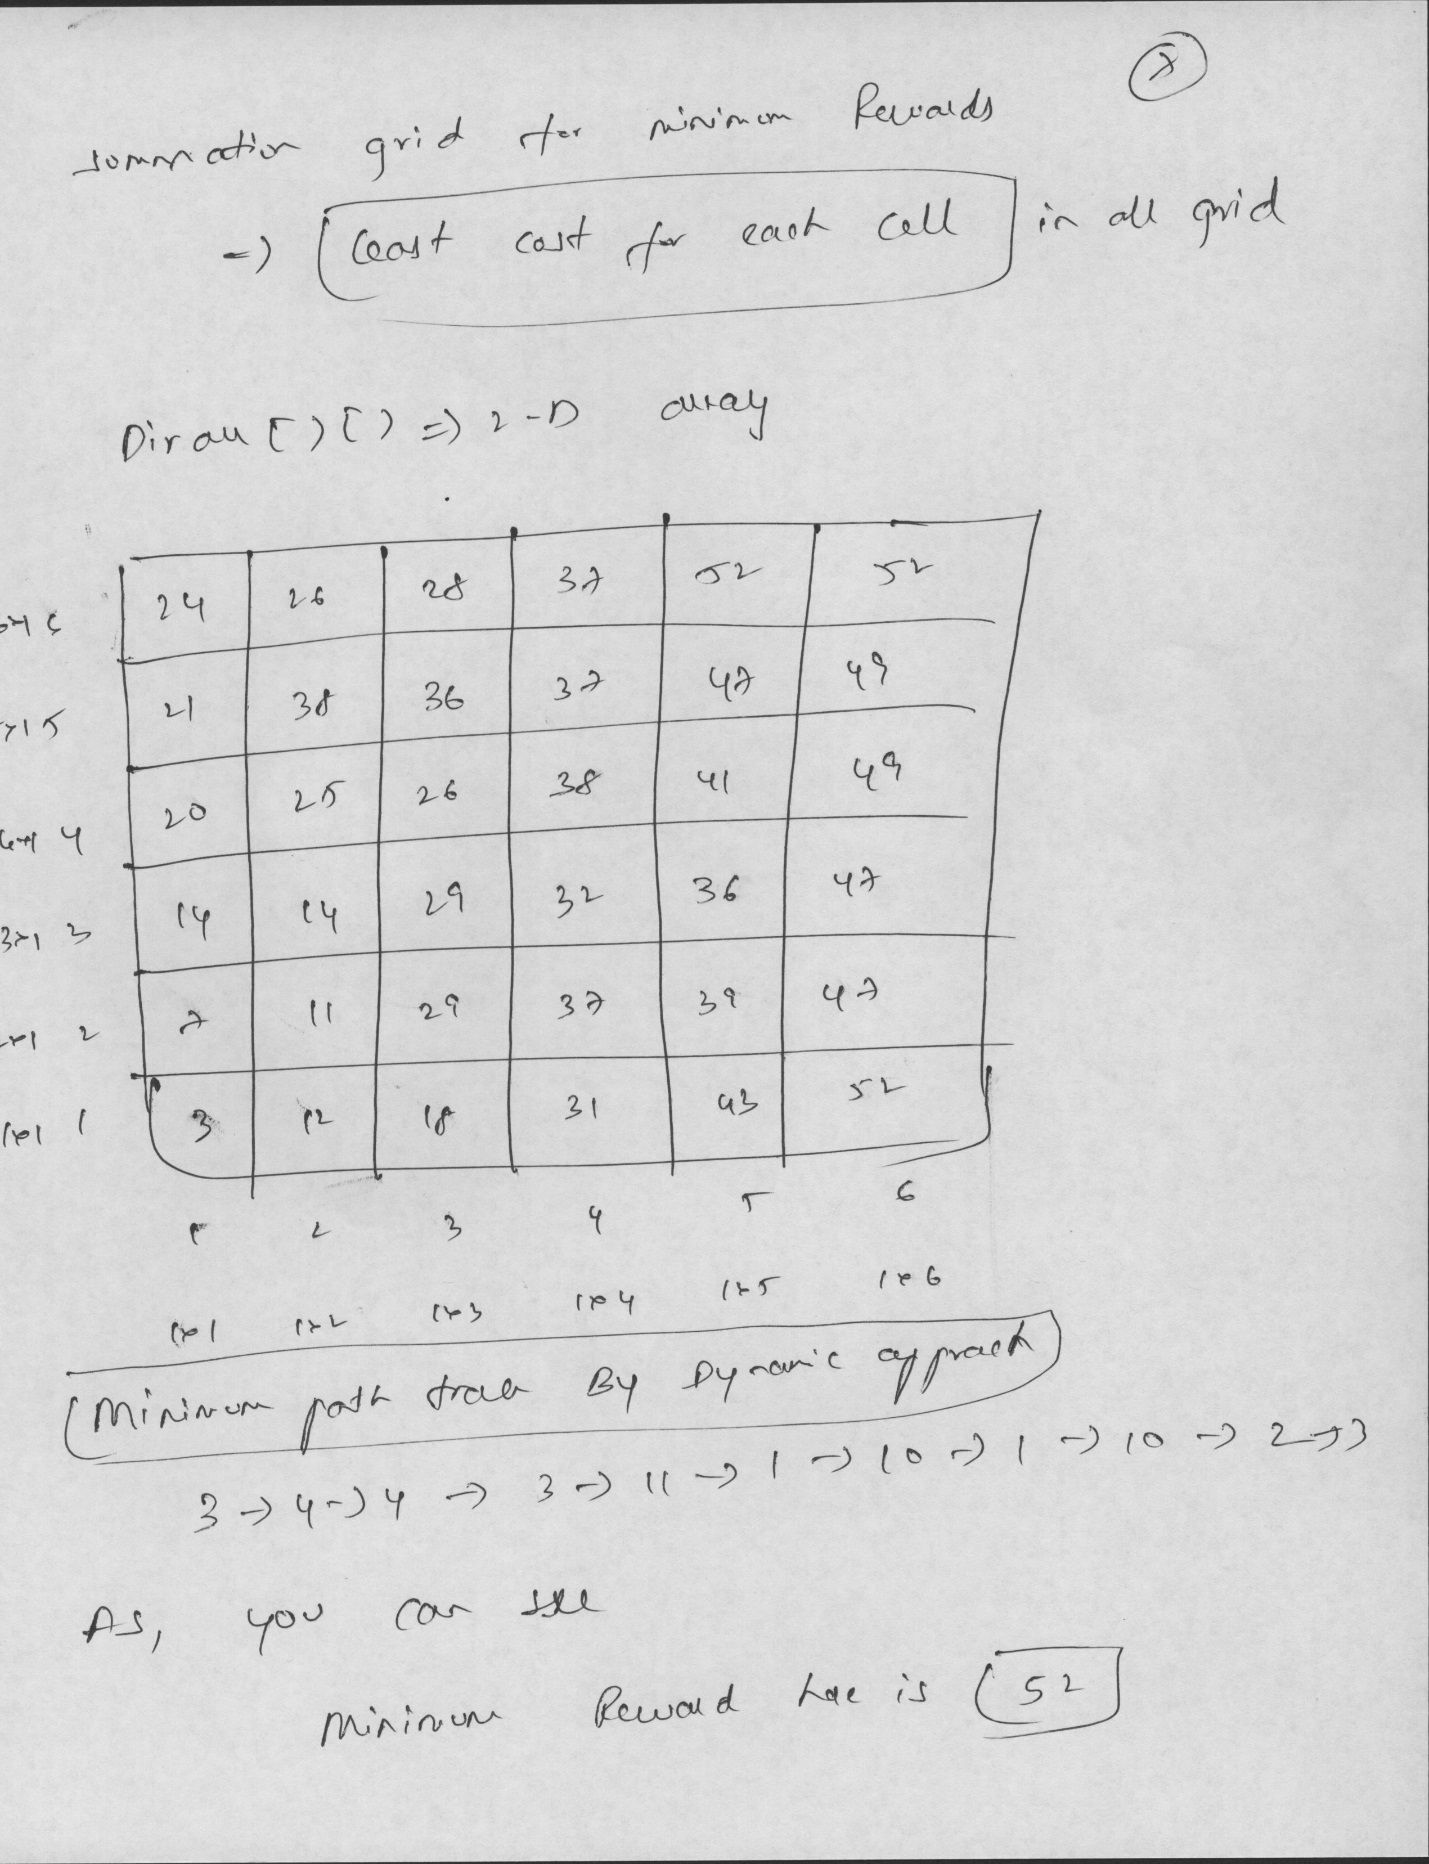 7
summation grid for minimum Rewards
=> least cost for each cell in all grid
Dirau [ ] [ ] => 2-D array
6 24 26 28 37 52 52
5 21 38 36 37 47 49
4 20 25 26 38 41 49
3x1 3 14 14 29 32 36 47
2 7 11 29 37 39 47
1x1 1 3 12 18 31 43 52
1 2 3 4 5 6
1x1 1x2 1x3 1x4 1x5 1x6
Minimum path trace By Dynamic approach
3 -> 4 -> 4 -> 3 -> 11 -> 1 -> 10 -> 1 -> 10 -> 2 -> 3
As, you can see
Minimum Reward here is 52